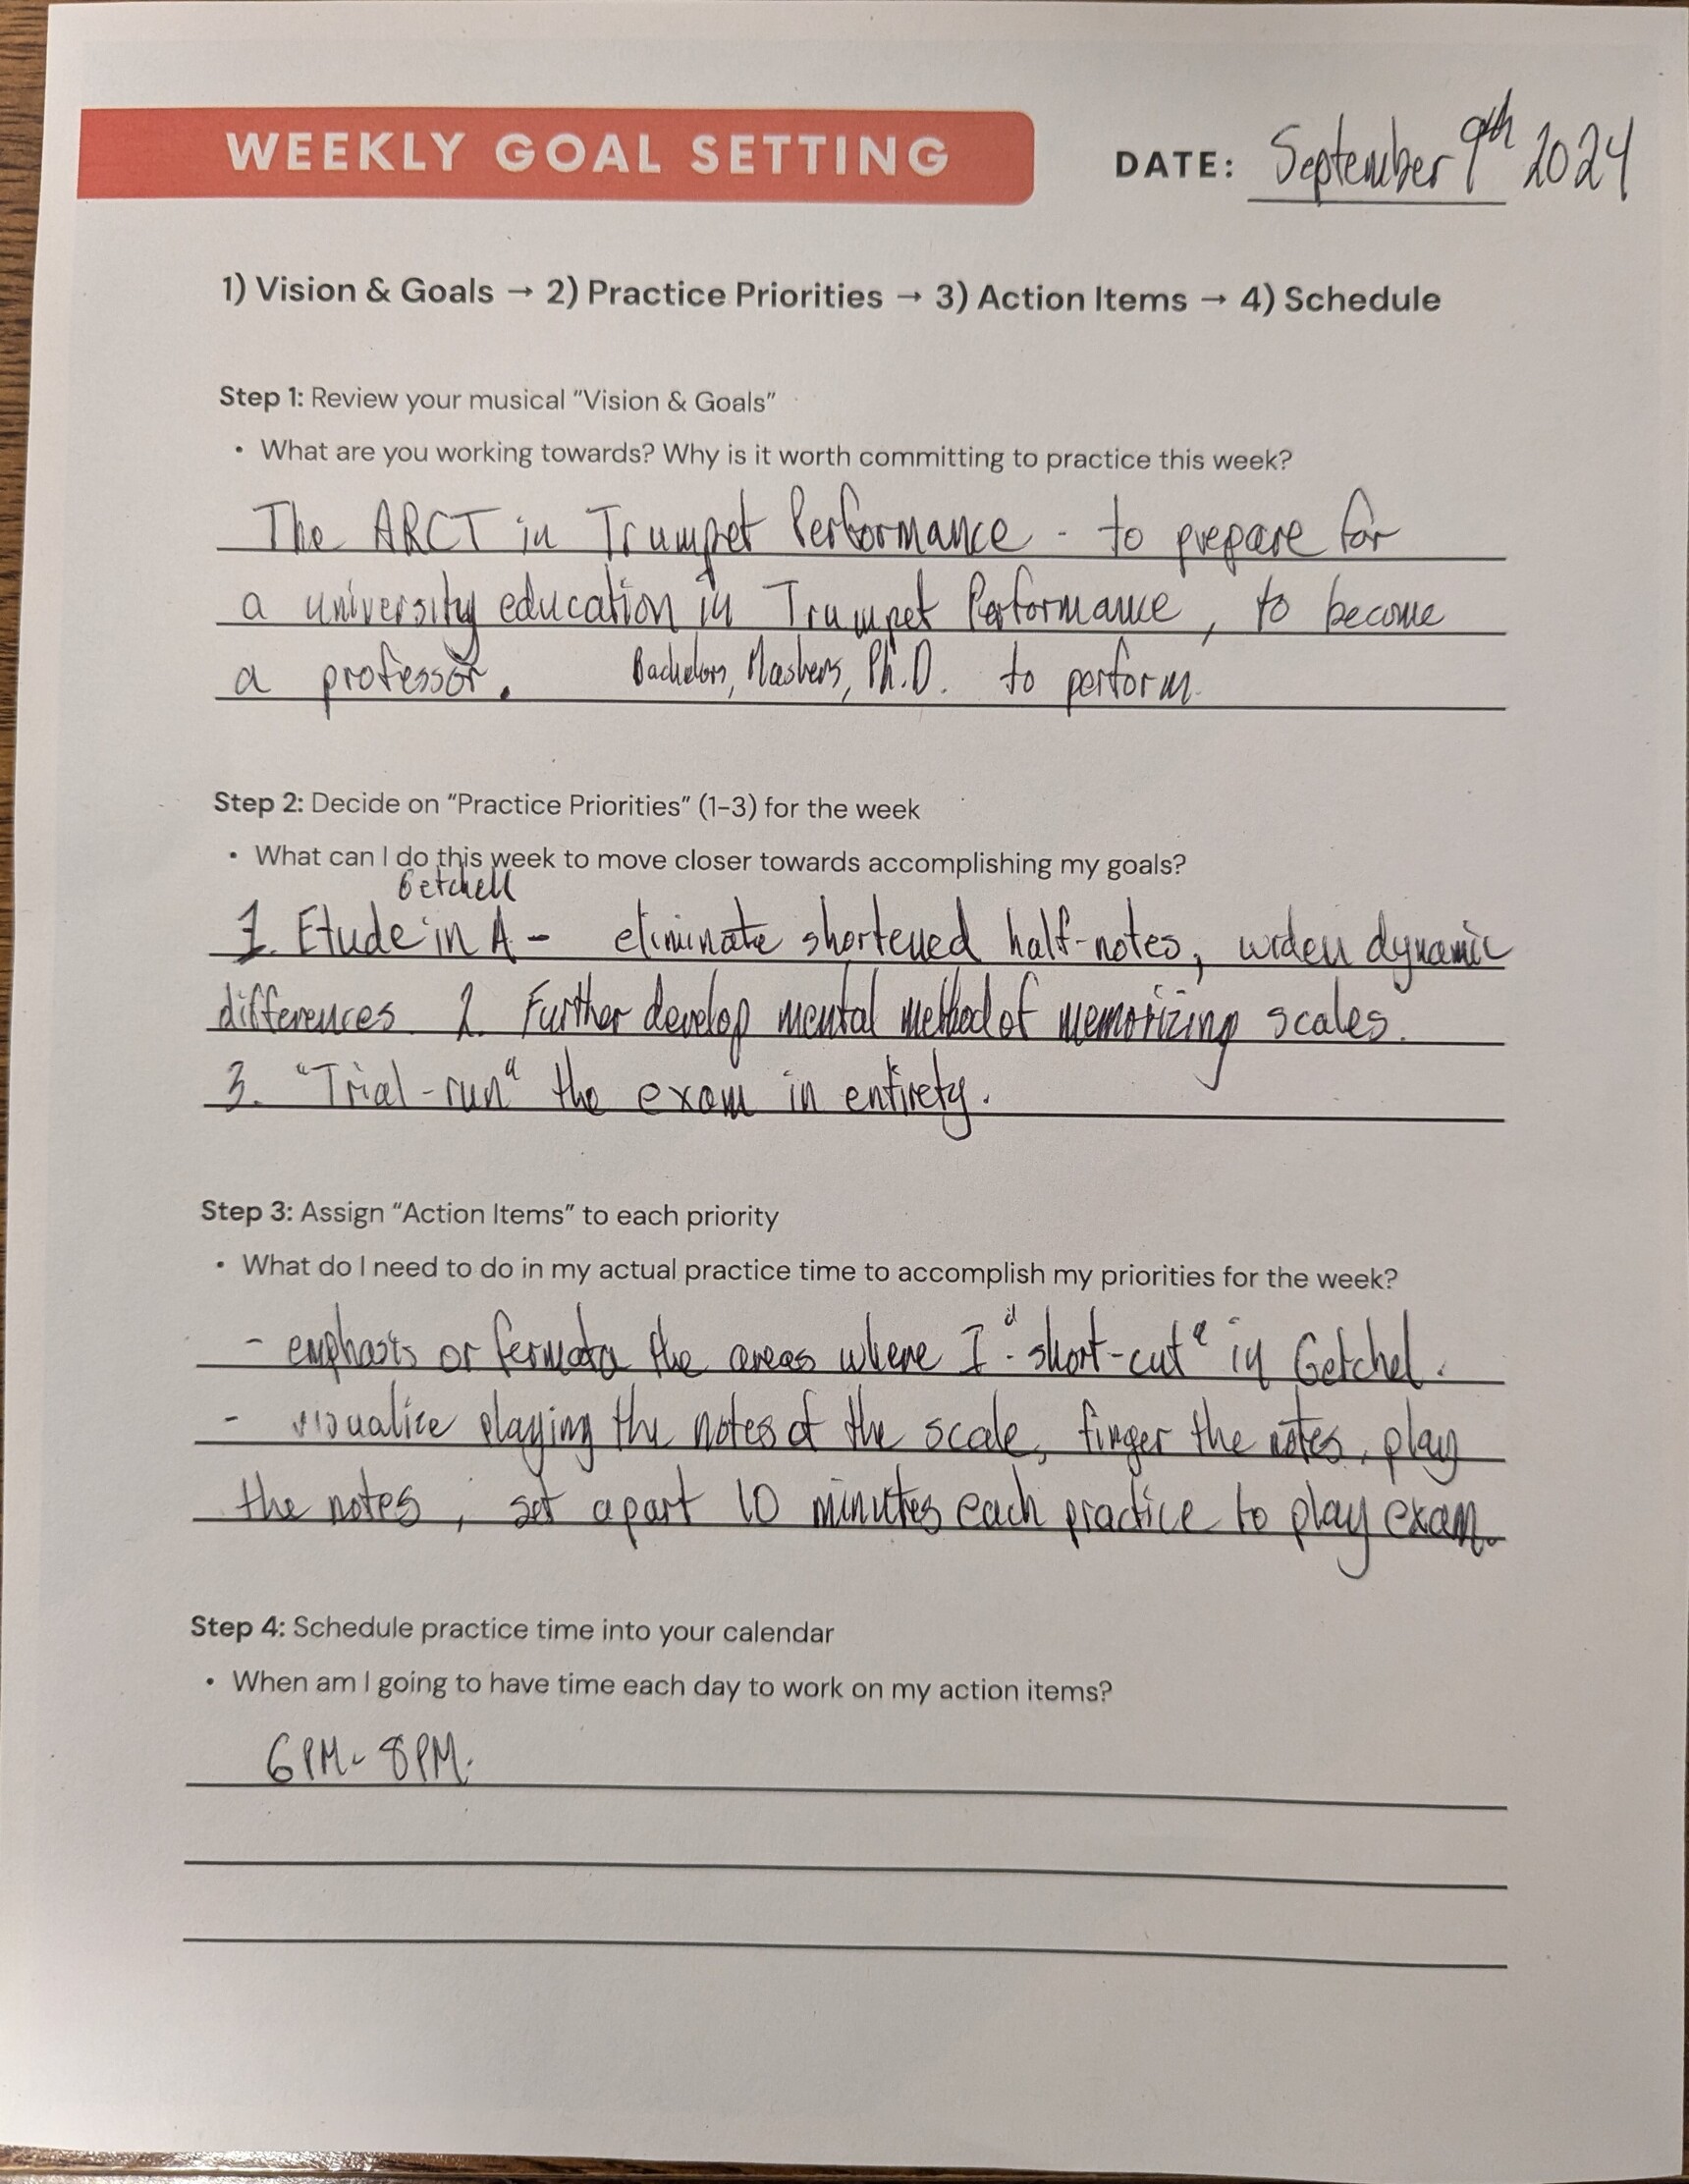 WEEKLY GOAL SETTING
DATE: September 9th 2024
1) Vision & Goals → 2) Practice Priorities → 3) Action Items → 4) Schedule
Step 1: Review your musical "Vision & Goals"
• What are you working towards? Why is it worth committing to practice this week?
The ARCT in Trumpet Performance - to prepare for
a university education in Trumpet Performance, to become
a professor. Bachelors, Masters, Ph.D. to perform.
Step 2: Decide on "Practice Priorities" (1-3) for the week
• What can I do this week to move closer towards accomplishing my goals?
Getchell
1. Etude in A - eliminate shortened half-notes, widen dynamic
differences. 2. Further develop mental method of memorizing scales.
3. "Trial-run" the exam in entirety.
Step 3: Assign "Action Items" to each priority
• What do I need to do in my actual practice time to accomplish my priorities for the week?
- emphasis or fermata the areas where I "short-cut" in Getchel.
- visualize playing the notes of the scale, finger the notes, play
the notes, set apart 10 minutes each practice to play exam.
Step 4: Schedule practice time into your calendar
• When am I going to have time each day to work on my action items?
6PM - 8PM.